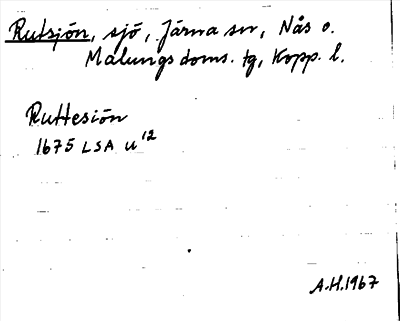 Rutsjön, sjö, Järna sn, Nås o.
Malungs doms. tg, Kopp. l.
Ruttesiön
1675 LSA U 12
A.H. 1967